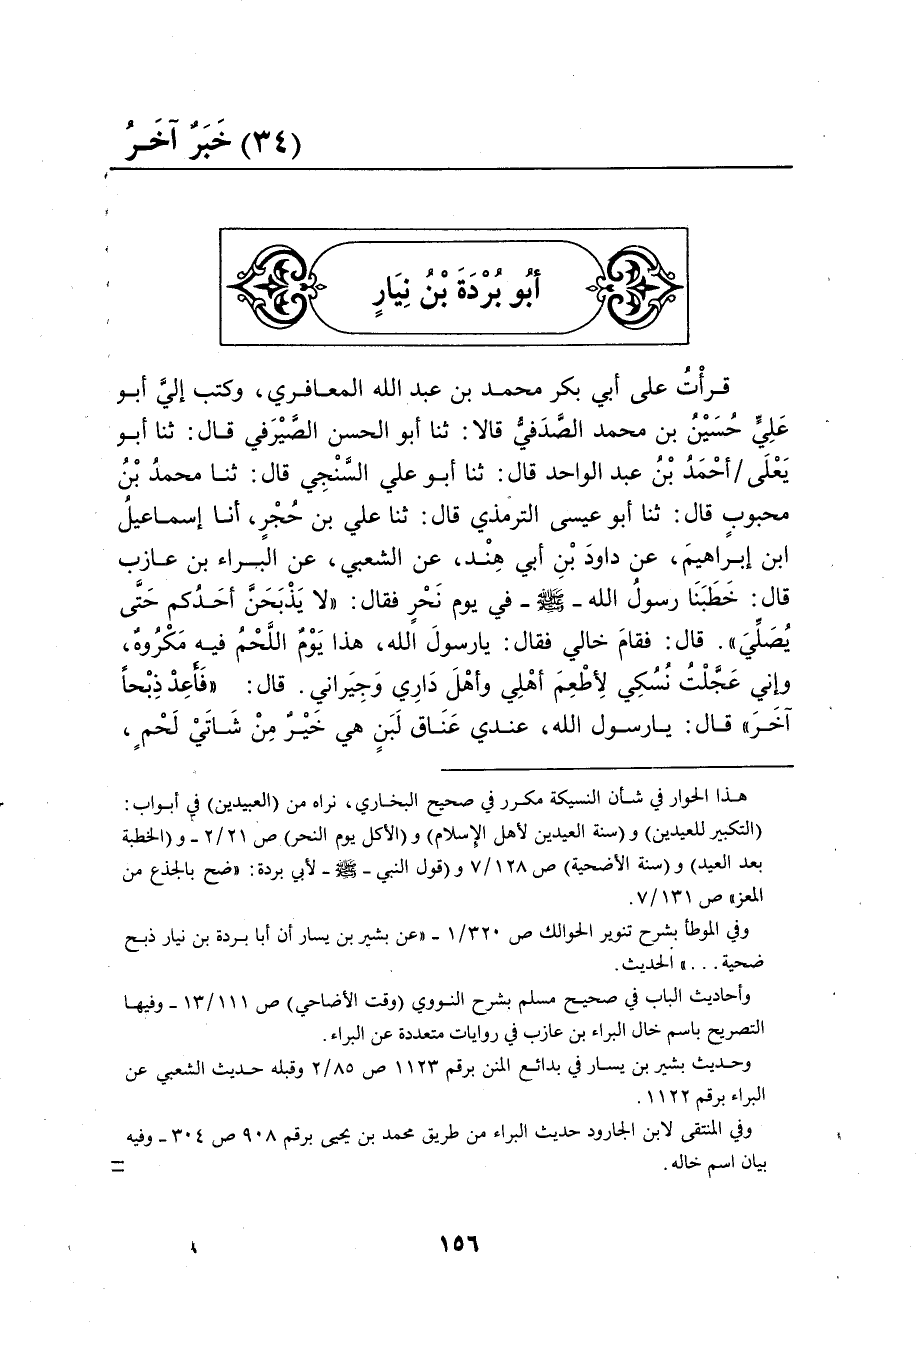 (٣٤) خَبَرٌ آخَرُ
أبُو بُرْدَةَ بْنُ نِيَارٍ
قرأْتُ على أبي بكر محمد بن عبد الله المعافري، وكتب إليَّ أبو
عَلِيٍّ حُسَيْنُ بن محمد الصَّدَفيُّ قالا: ثنا أبو الحسن الصَّيْرَفي قال: ثنا أبو
يَعْلَى/أحْمَدُ بْنُ عبد الواحد قال: ثنا أبو علي السَّنْجِي قال: ثنا محمدُ بْنُ
محبوبٍ قال: ثنا أبو عيسى الترمذي قال: ثنا علي بن حُجْرٍ، أنا إسماعيلُ
ابن إبراهيمَ، عن داودَ بْنِ أبي هِنْد، عن الشعبي، عن البراء بن عازب
قال: خَطَبَنَا رسولُ الله ـ ﷺ ـ في يوم نَحْرٍ فقال: «لا يَذْبَحَنَّ أحَدُكم حَتَّى
يُصَلِّيَ». قال: فقامَ خالي فقال: يارسولَ الله، هذا يَوْمٌ اللَّحْمُ فيه مَكْرُوهٌ،
وإني عَجَّلْتُ نُسُكِي لِأطْعِمَ أهْلِي وأهْلَ دَارِي وَجِيَراني. قال: «فَأَعِدْ ذِبْحاً
آخَرَ» قال: يارسول الله، عندي عَنَاق لَبَنٍ هي خَيْرٌ مِنْ شَاتَيْ لَحْمٍ،
هذا الحوار في شأن النسيكة مكرر في صحيح البخاري، نراه من (العبيدين) في أبواب:
(التكبير للعيدين) و(سنة العيدين لأهل الإسلام) و(الأكل يوم النحر) ص ٢/٢١ ـ و(الخطبة
بعد العيد) و(سنة الأضحية) ص ٧/١٢٨ و(قول النبي ـ ﷺ ـ لأبي بردة: «ضح بالجذع من
المعز» ص ٧/١٣١.
وفي الموطأ بشرح تنوير الحوالك ص ١/٣٢٠ ـ «عن بشير بن يسار أن أبا بردة بن نيار ذبح
ضحية...» الحديث.
وأحاديث الباب في صحيح مسلم بشرح النووي (وقت الأضاحي) ص ١٣/١١١ ـ وفيها
التصريح باسم خال البراء بن عازب في روايات متعددة عن البراء.
وحديث بشير بن يسار في بدائع المنن برقم ١١٢٣ ص ٢/٨٥ وقبله حديث الشعبي عن
البراء برقم ١١٢٢.
وفي المنتقى لابن الجارود حديث البراء من طريق محمد بن يحيى برقم ٩٠٨ ص ٣٠٤ ـ وفيه
بيان اسم خاله. =
١٥٦